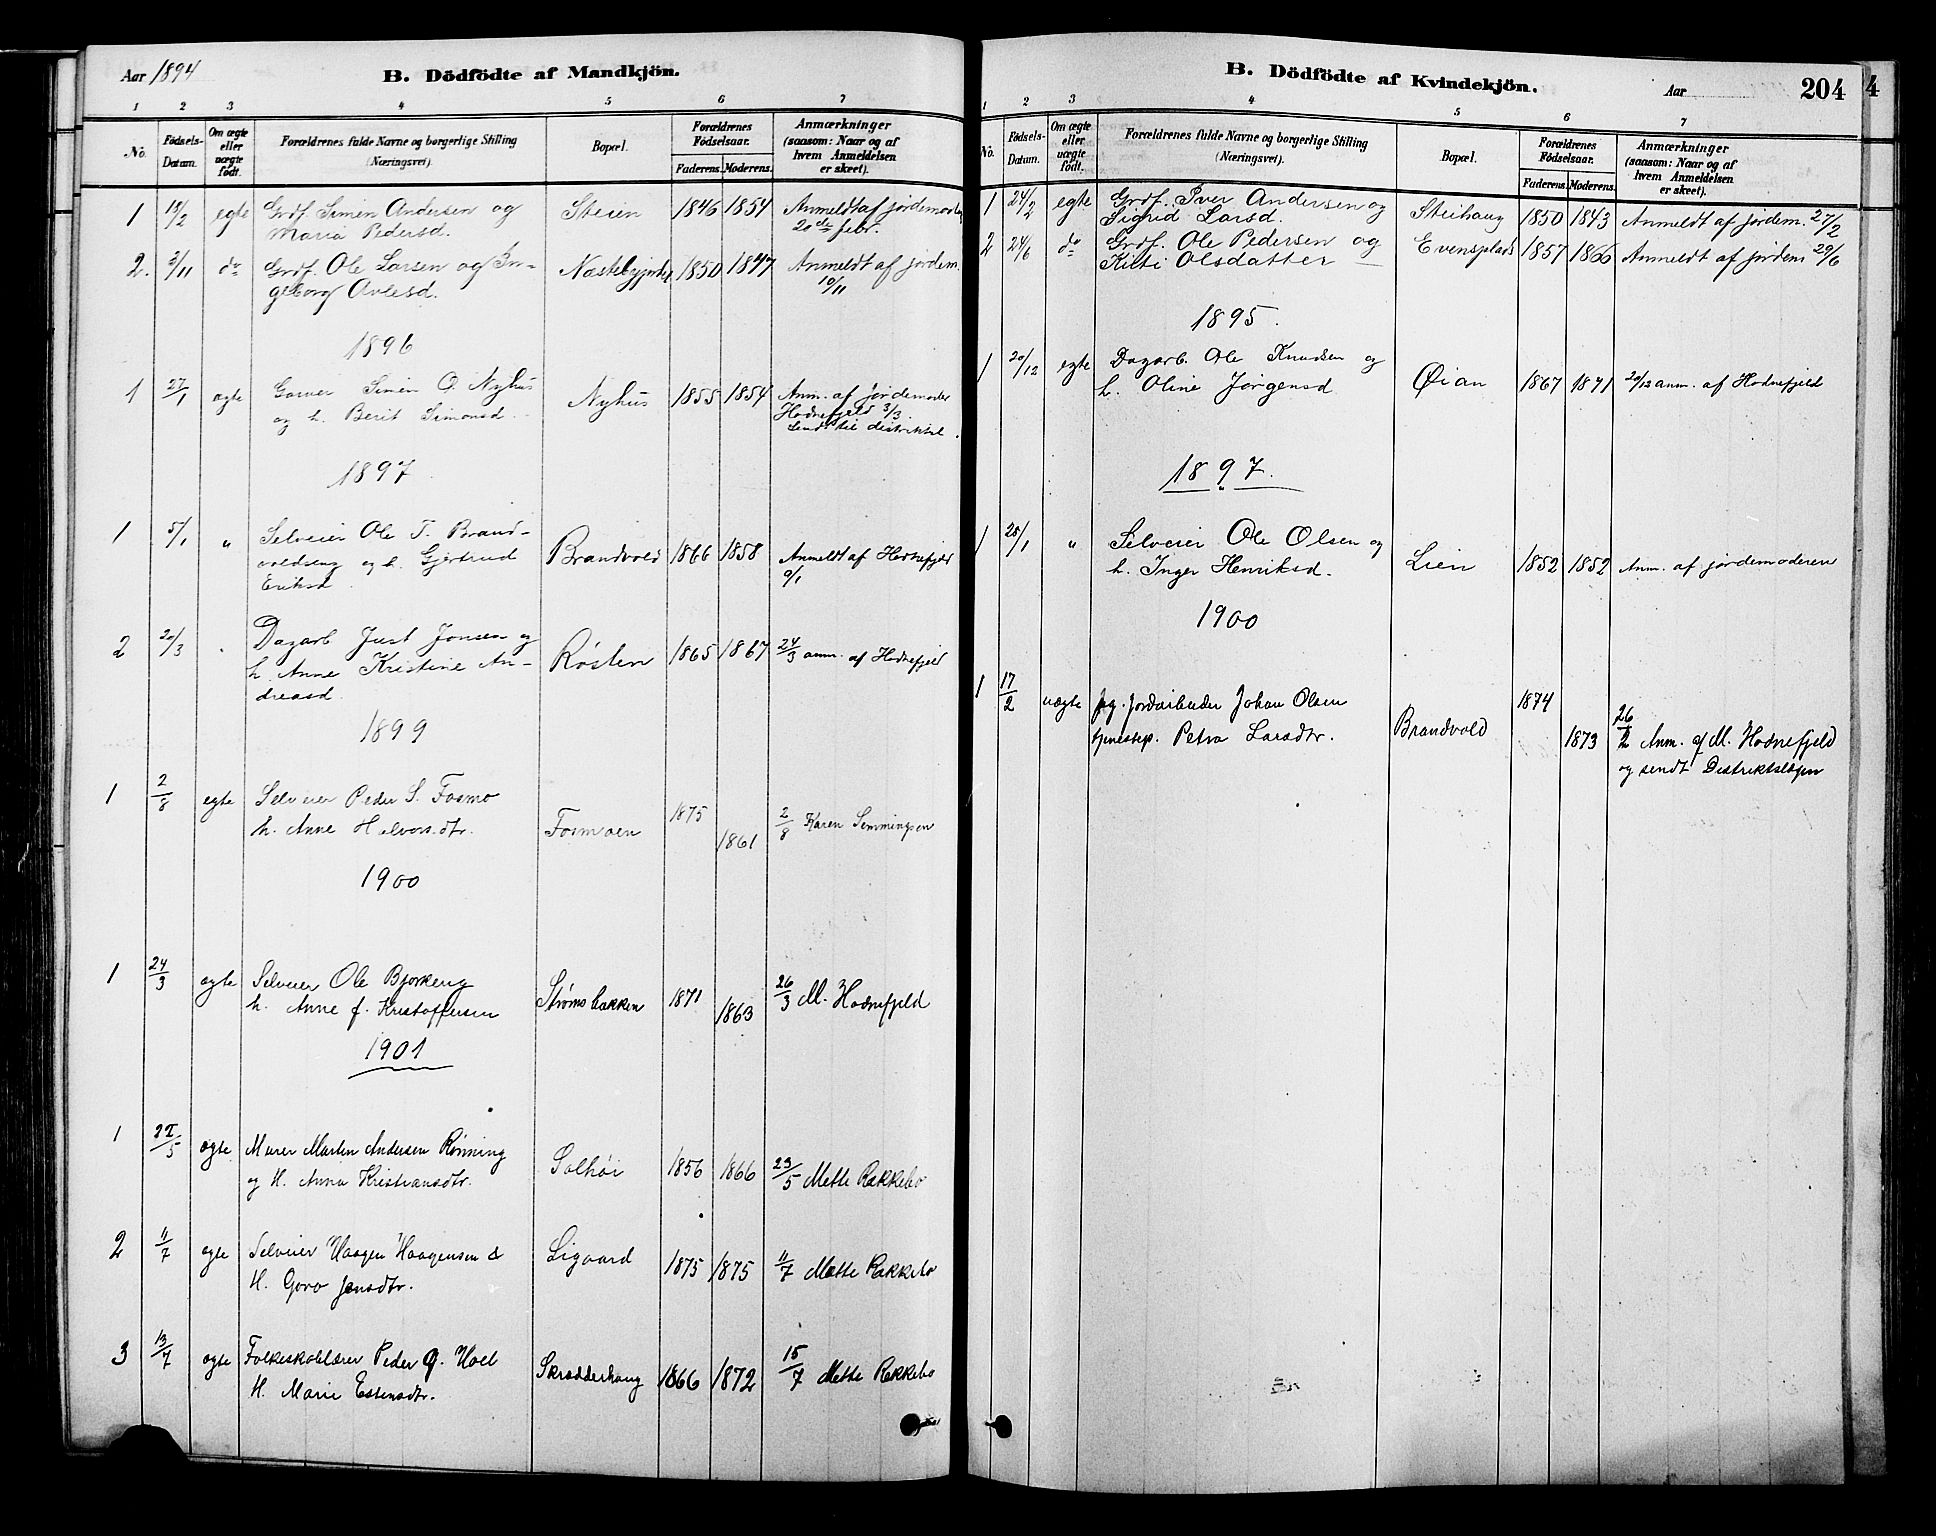 Aar 1894
B. Dödfödte af Mandkjön.
1 2 3 4 5 6 7
No. Födsels-Datum. Om ægte eller uægte födt. Forældrenes fulde Navne og borgerlige Stilling (Næringsvei). Bopæl. Forældrenes Födselsaar. Faderens. Moderens. Anmærkninger (saasom: Naar og af hvem Anmeldelsen er skeet).
1 19/2 egte Grdf. Simen Andersen og Steien 1846 1854 Anmeldt af jordemoder
Maria Pedersd. 20de febr.
2. 3/11 do Grdf. Ole Larsen og In- 1850 1847 Anmeldt af jordem.
geborg Avlesd. 10/11
1896
1 27/1 egte Gaardbr. Simen O. Nyhus Nyhus 1855 1854 Anm. af jordemoder
og h. Berit Simonsd. Hodnefjeld 3/3.
Sendt til distriktsl.
1897
1 5/1 " Selveier Ole T. Brand- Brandvold 1866 1858 Anmeldt af Hodnefjeld
voldseng og h. Gjertrud 9/1
Eriksd.
2 20/3 " Dagarb. Just Jonsen og Røsten 1865 1867 24/3 anm. af Hodnefjeld
h. Anne Kristine An-
dreasd.
1899
1 2/8 egte Selveier Peder S. Fosmo Fosmoen 1875 2/8 Karen Semmingsen
h. Anne Halvorsdtr. 1861
1900
1 24/3 egte Selveier Ole Bjørkeng Strømsbakken 1871 26/3 M. Hodnefjeld
h. Anne f. Kristoffersen 1863
1901
1 22/5 egte Murer Martin Andersen Rønning Solhøi 1856 1866 23/5 Mette Rakkebo
og H. Anna Kristiansdtr.
2 11/7 egte Selveier Haagen Haagensen & Ligaard 1875 1875 11/7 Mette Rakkebo
H. Goro Jensdtr.
3 13/7 egte Folkeskolelærer Peder G. Hoel Skrædderhaug 1866 1872 15/7 Mette Rakkebo
H. Marie Estensdtr.
B. Dödfödte af Kvindekjön.
Aar 204
4
1 2 3 4 5 6 7
No. Födsels-Datum. Om ægte eller uægte födt. Forældrenes fulde Navne og borgerlige Stilling (Næringsvei). Bopæl. Forældrenes Födselsaar. Faderens. Moderens. Anmærkninger (saasom: Naar og af hvem Anmeldelsen er skeet).
1 24/2 egte Grdf. Iver Andersen og Steihaug 1850 1843 Anmeldt af jordem. 27/2
Sigrid Larsd.
2 24/6 do Grdf. Ole Pedersen og Evensplads 1857 1866 Anmeldt af jordem 29/6
Kiti Olsdatter
1895.
1 20/12 egte Dagarb. Ole Knudsen og Øian 1867 1871 20/12 anm. af Hodnefjeld
h. Oline Jørgensd
1897.
1 28/1 " Selveier Ole Olsen og Lien 1852 1852 Anm. af jordemoderen
h. Inger Henriksd.
1900
1 17/2 uægte Jordarbeider Johan Olsen Brandvold 1874
tjenestep. Petra Larsdtr. 1873 26/2 Anm. af M. Hodnefjeld
og sendt Distriktslægen